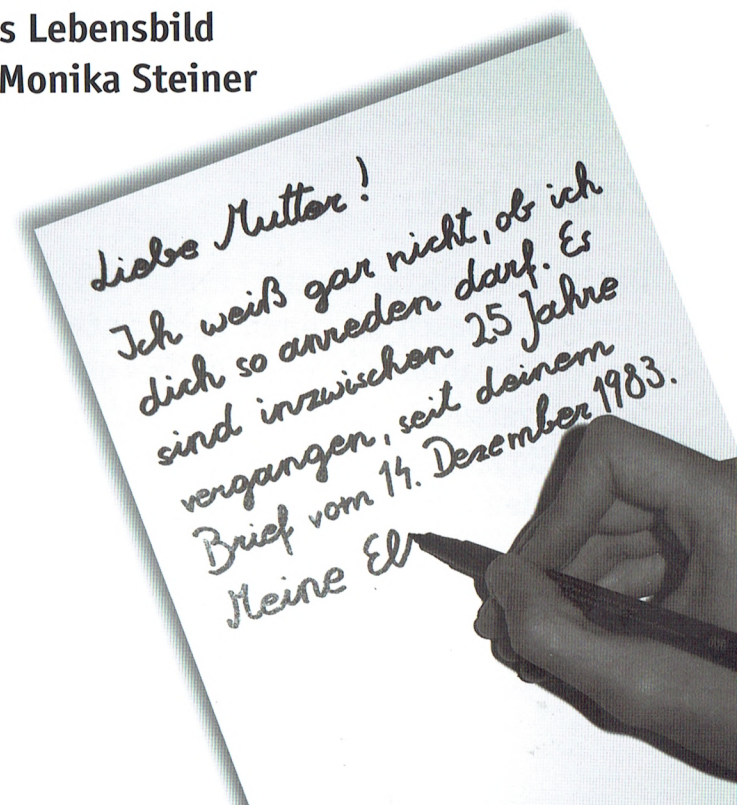 s Lebensbild
Monika Steiner
Liebe Mutter!
Ich weiß gar nicht, ob ich
dich so anreden darf. Es
sind inzwischen 25 Jahre
vergangen, seit deinem
Brief vom 14. Dezember 1983.
Meine El